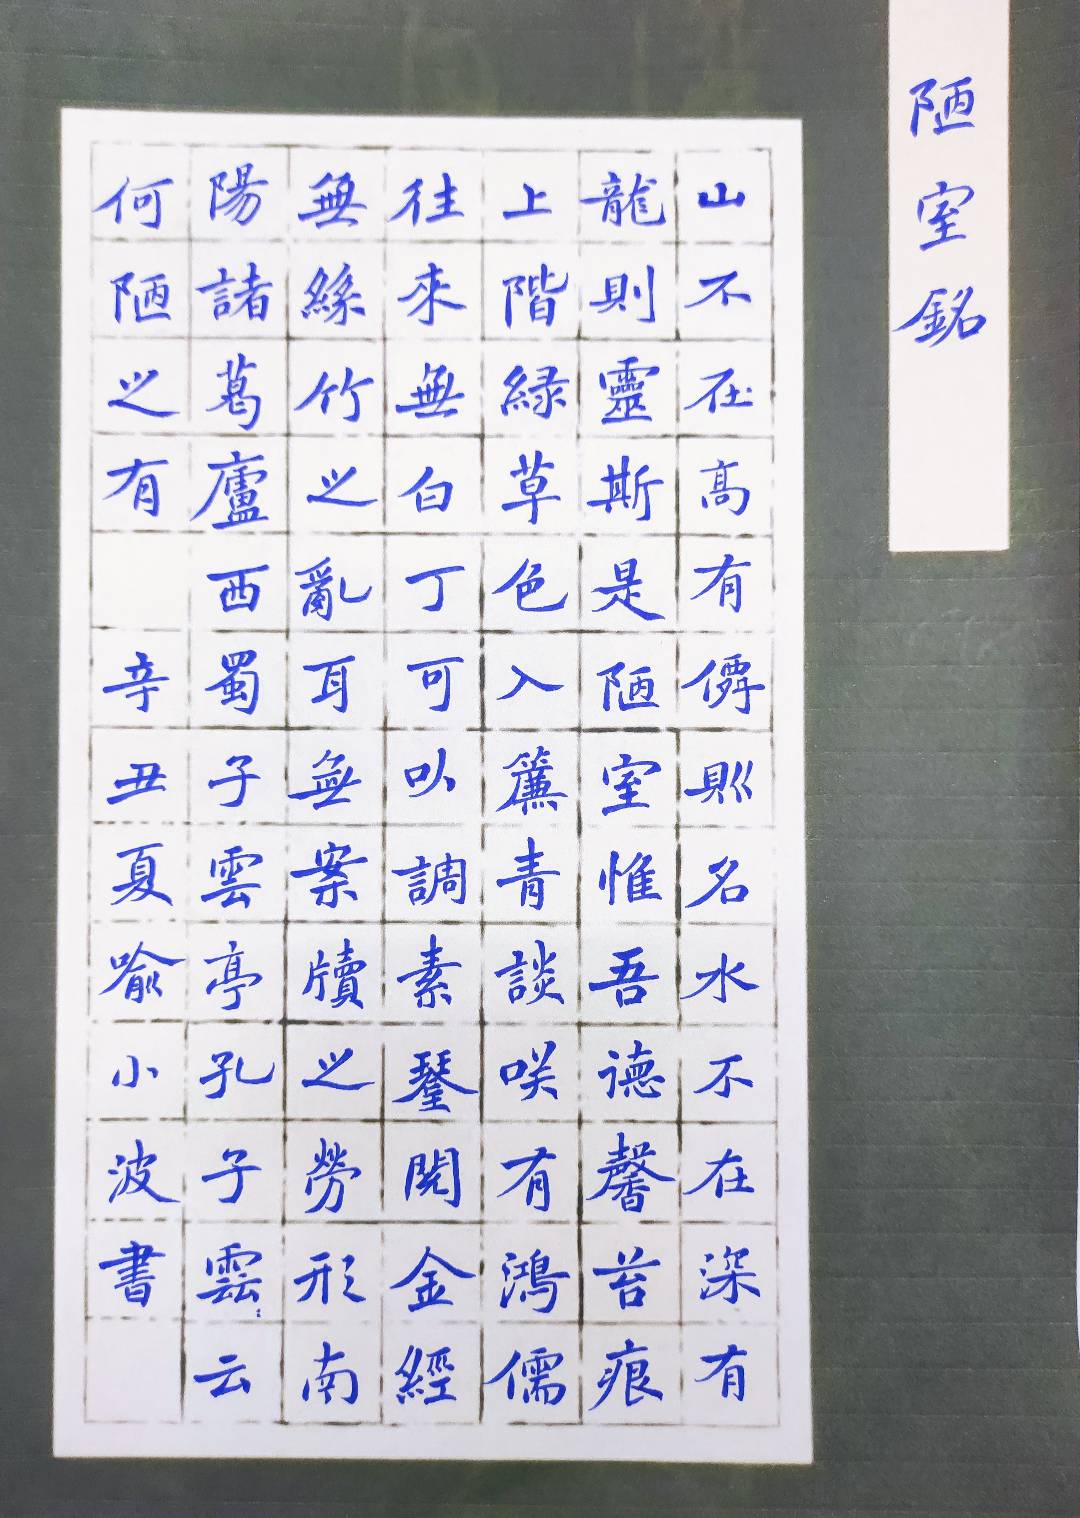 陋室銘
山不在高有僊則名水不在深有
龍則靈斯是陋室惟吾德馨苔痕
上階緑草色入簾青談咲有鴻儒
往來無白丁可以調素琴閱金經
無絲竹之亂耳無案牘之勞形南
陽諸葛廬西蜀子雲亭孔子雲云
何陋之有 辛丑夏喻小波書